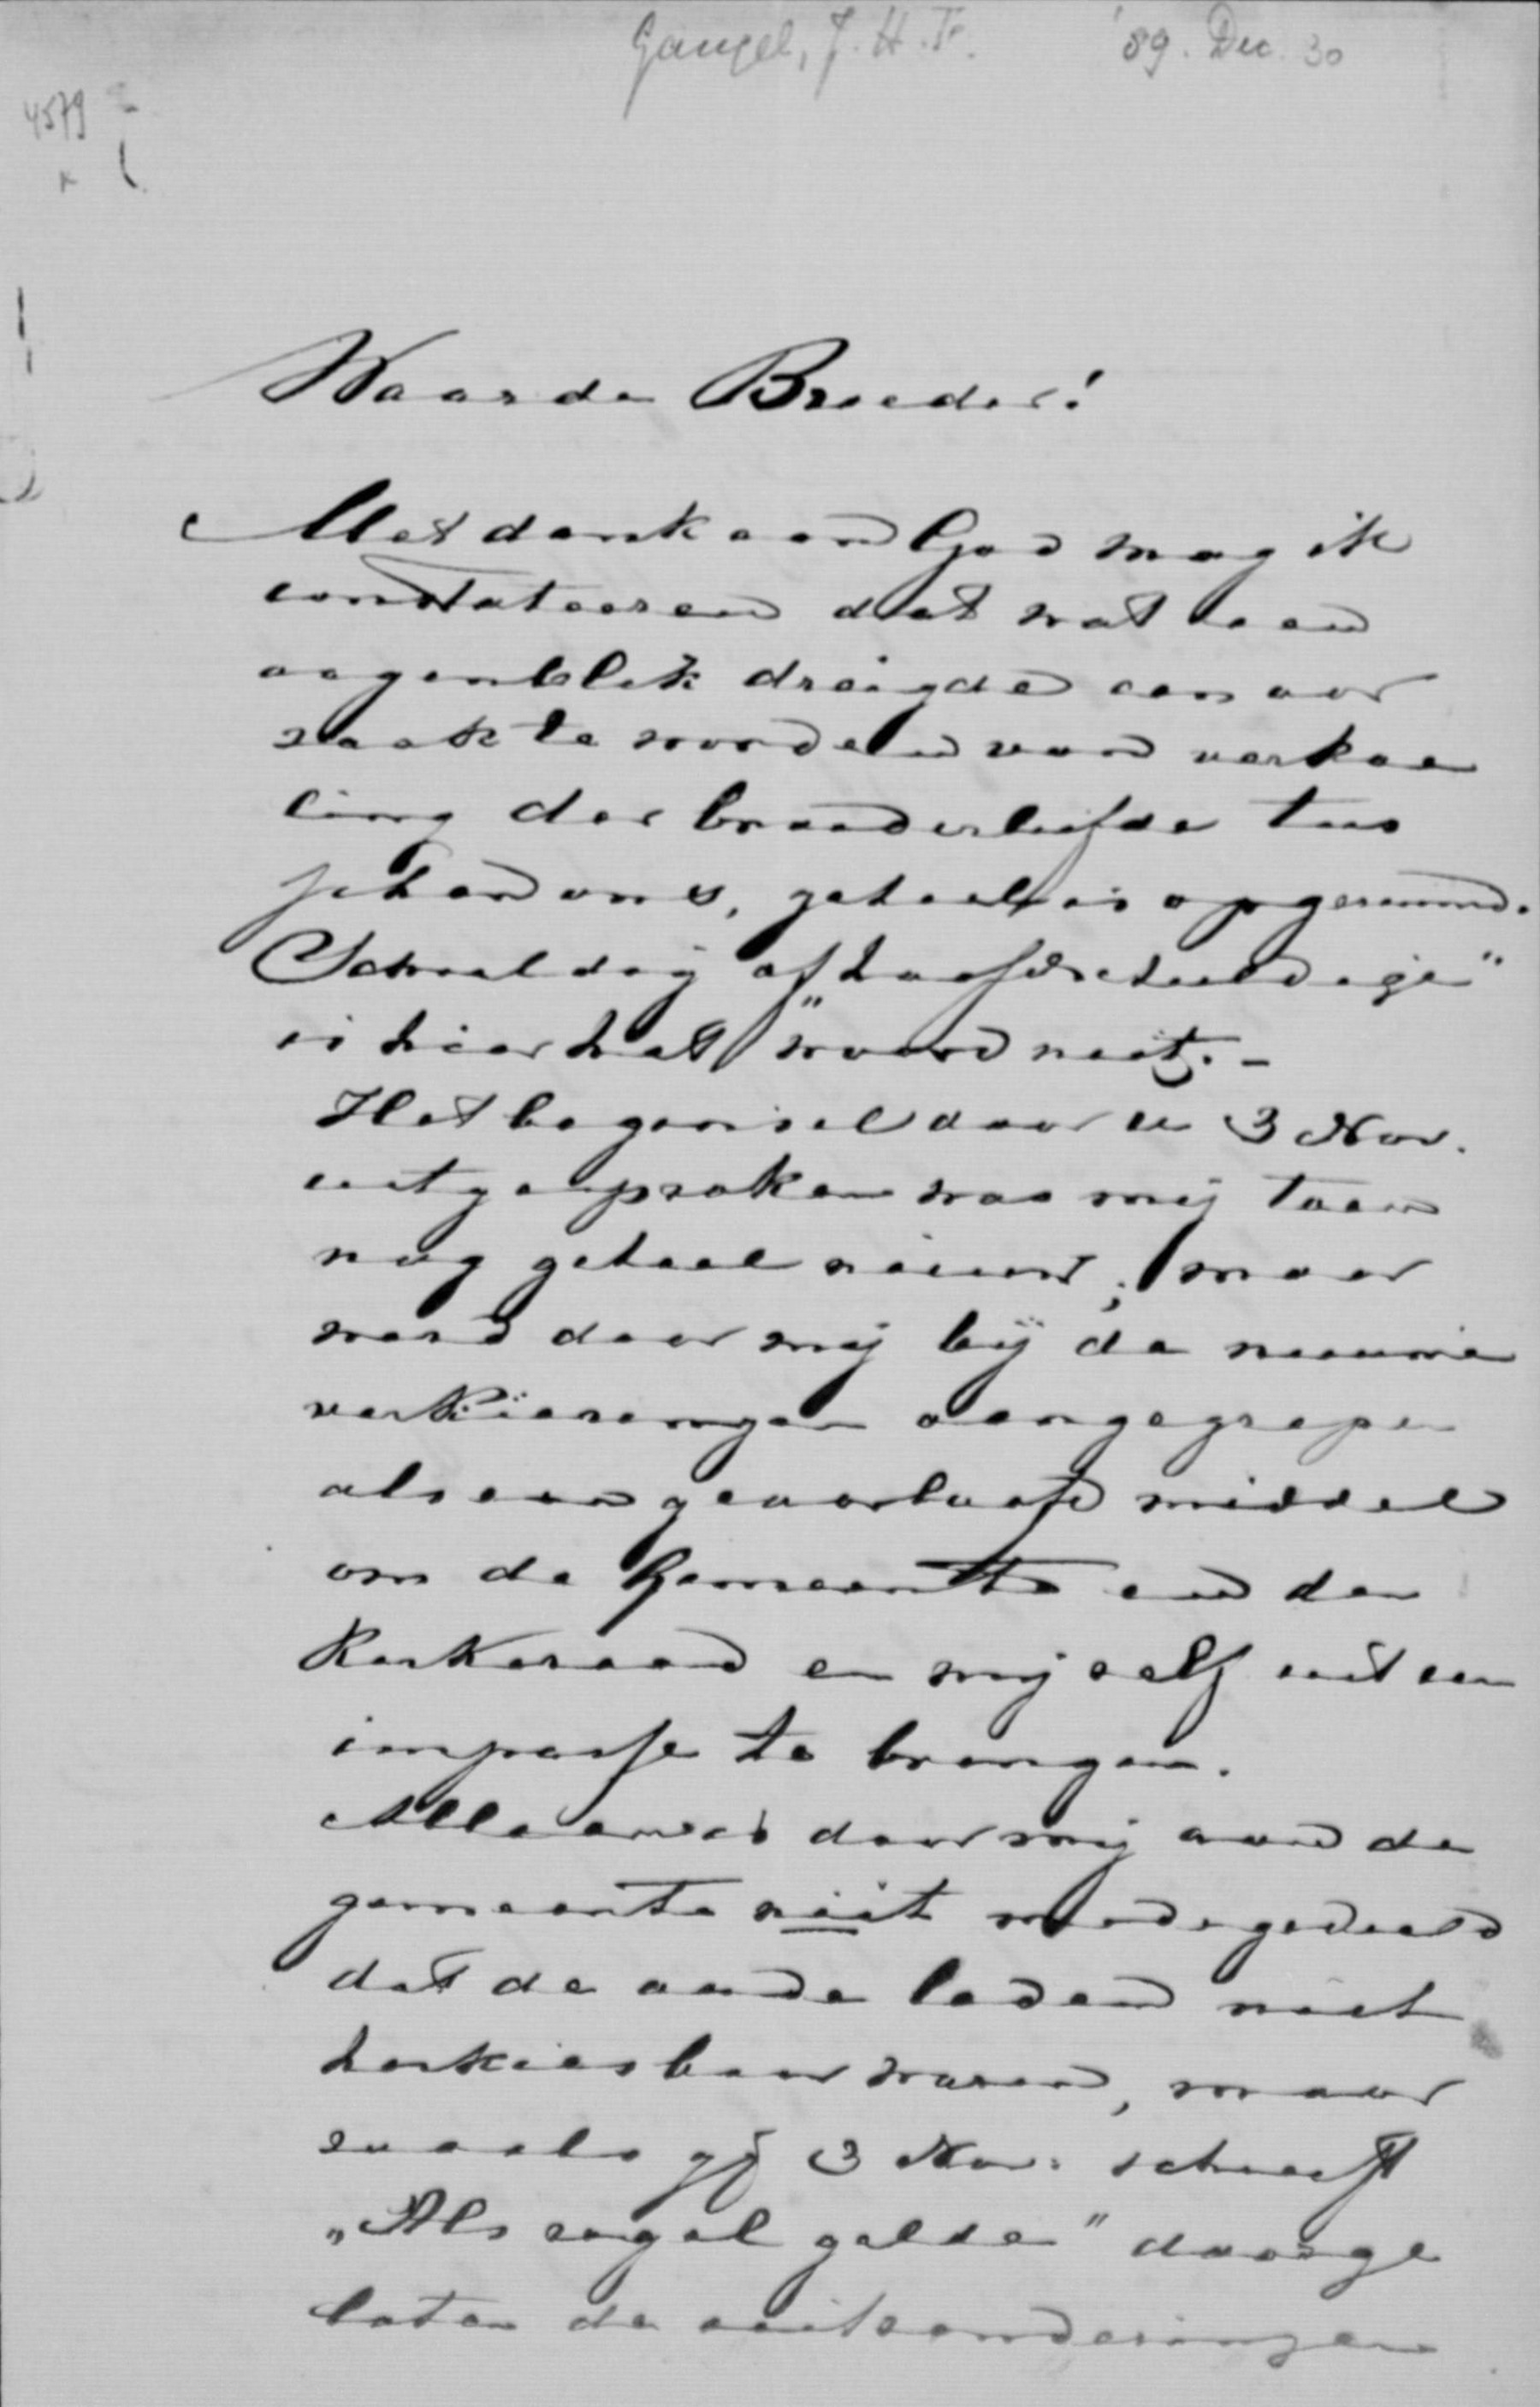 Gangel, J. H. F. '89. Dec. 30
4579
Waarde Broeder!
Met dank aan God mag ik
constateeren dat wat een
oogenblik dreigde een oor
zaak te worden van verkoe
ling der broederliefde tus
schen ons, geheel is opgeruimd.
Schuldig of hoofdschuldige"
is hier het "woord niet. -
Het beginsel door u 3 Nov.
uitgesproken was mij toen
nog geheel nieuw; maar
werd door mij bij de nieuwe
verkiezingen aangegrepen
als een geoorloofd middel
om de Gemeente en den
Kerkeraad en mij zelf uit een
impasse te brengen.
Alleen is door mij aan de
gemeente niet medegedeeld
dat de oude leden niet
herkiesbaar waren, maar
zooals gij 3 Nov. schreeft
„Als regel gelde" daarge
laten de uitzonderingen